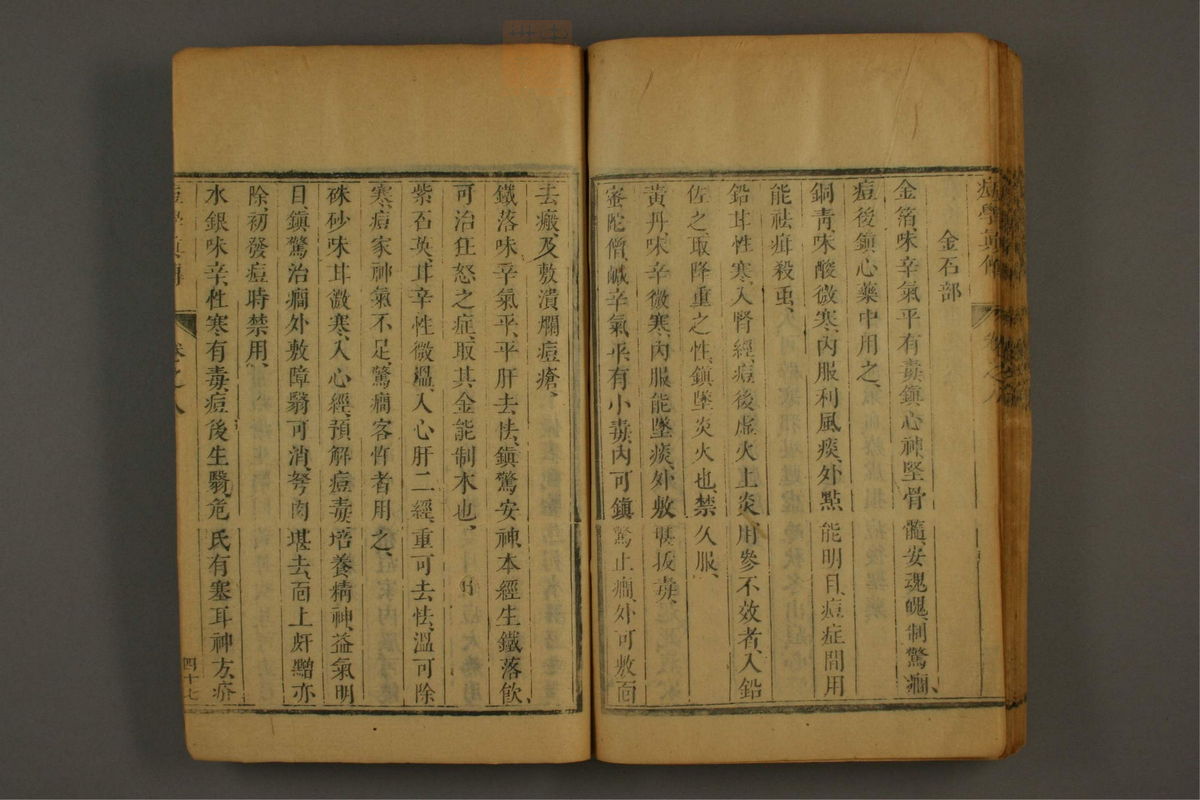 金石部
金箔味辛氣平有毒鎮心神堅骨髓安魂魄制驚癎
痘後鎮心藥中用之
銅青味酸微寒內服利風痰外點能明目痘症間用
能祛疳殺虫
鉛甘性寒入腎經痘後虛火上炎用參不效者入鉛
佐之取降重之性鎮墜炎火也禁久服
黃丹味辛微寒內服能墜痰外敷堪拔毒
密陀僧鹹辛氣平有小毒內可鎮驚止癎外可敷面
去瘢及敷潰爛痘瘡
鐵落味辛氣平平肝去怯鎮驚安神本經生鐵落飲
可治狂怒之症取其金能制木也
紫石英甘辛性微溫入心肝二經重可去怯溫可除
寒痘家神氣不足驚癎客忤者用之
硃砂味甘微寒入心經預解痘毒培養精神益氣明
目鎮驚治癎外敷障翳可消努肉堪去面上皯䵟亦
除初發痘時禁用
水銀味辛性寒有毒痘後生翳危氏有塞耳神方疥
卷之八
四十七